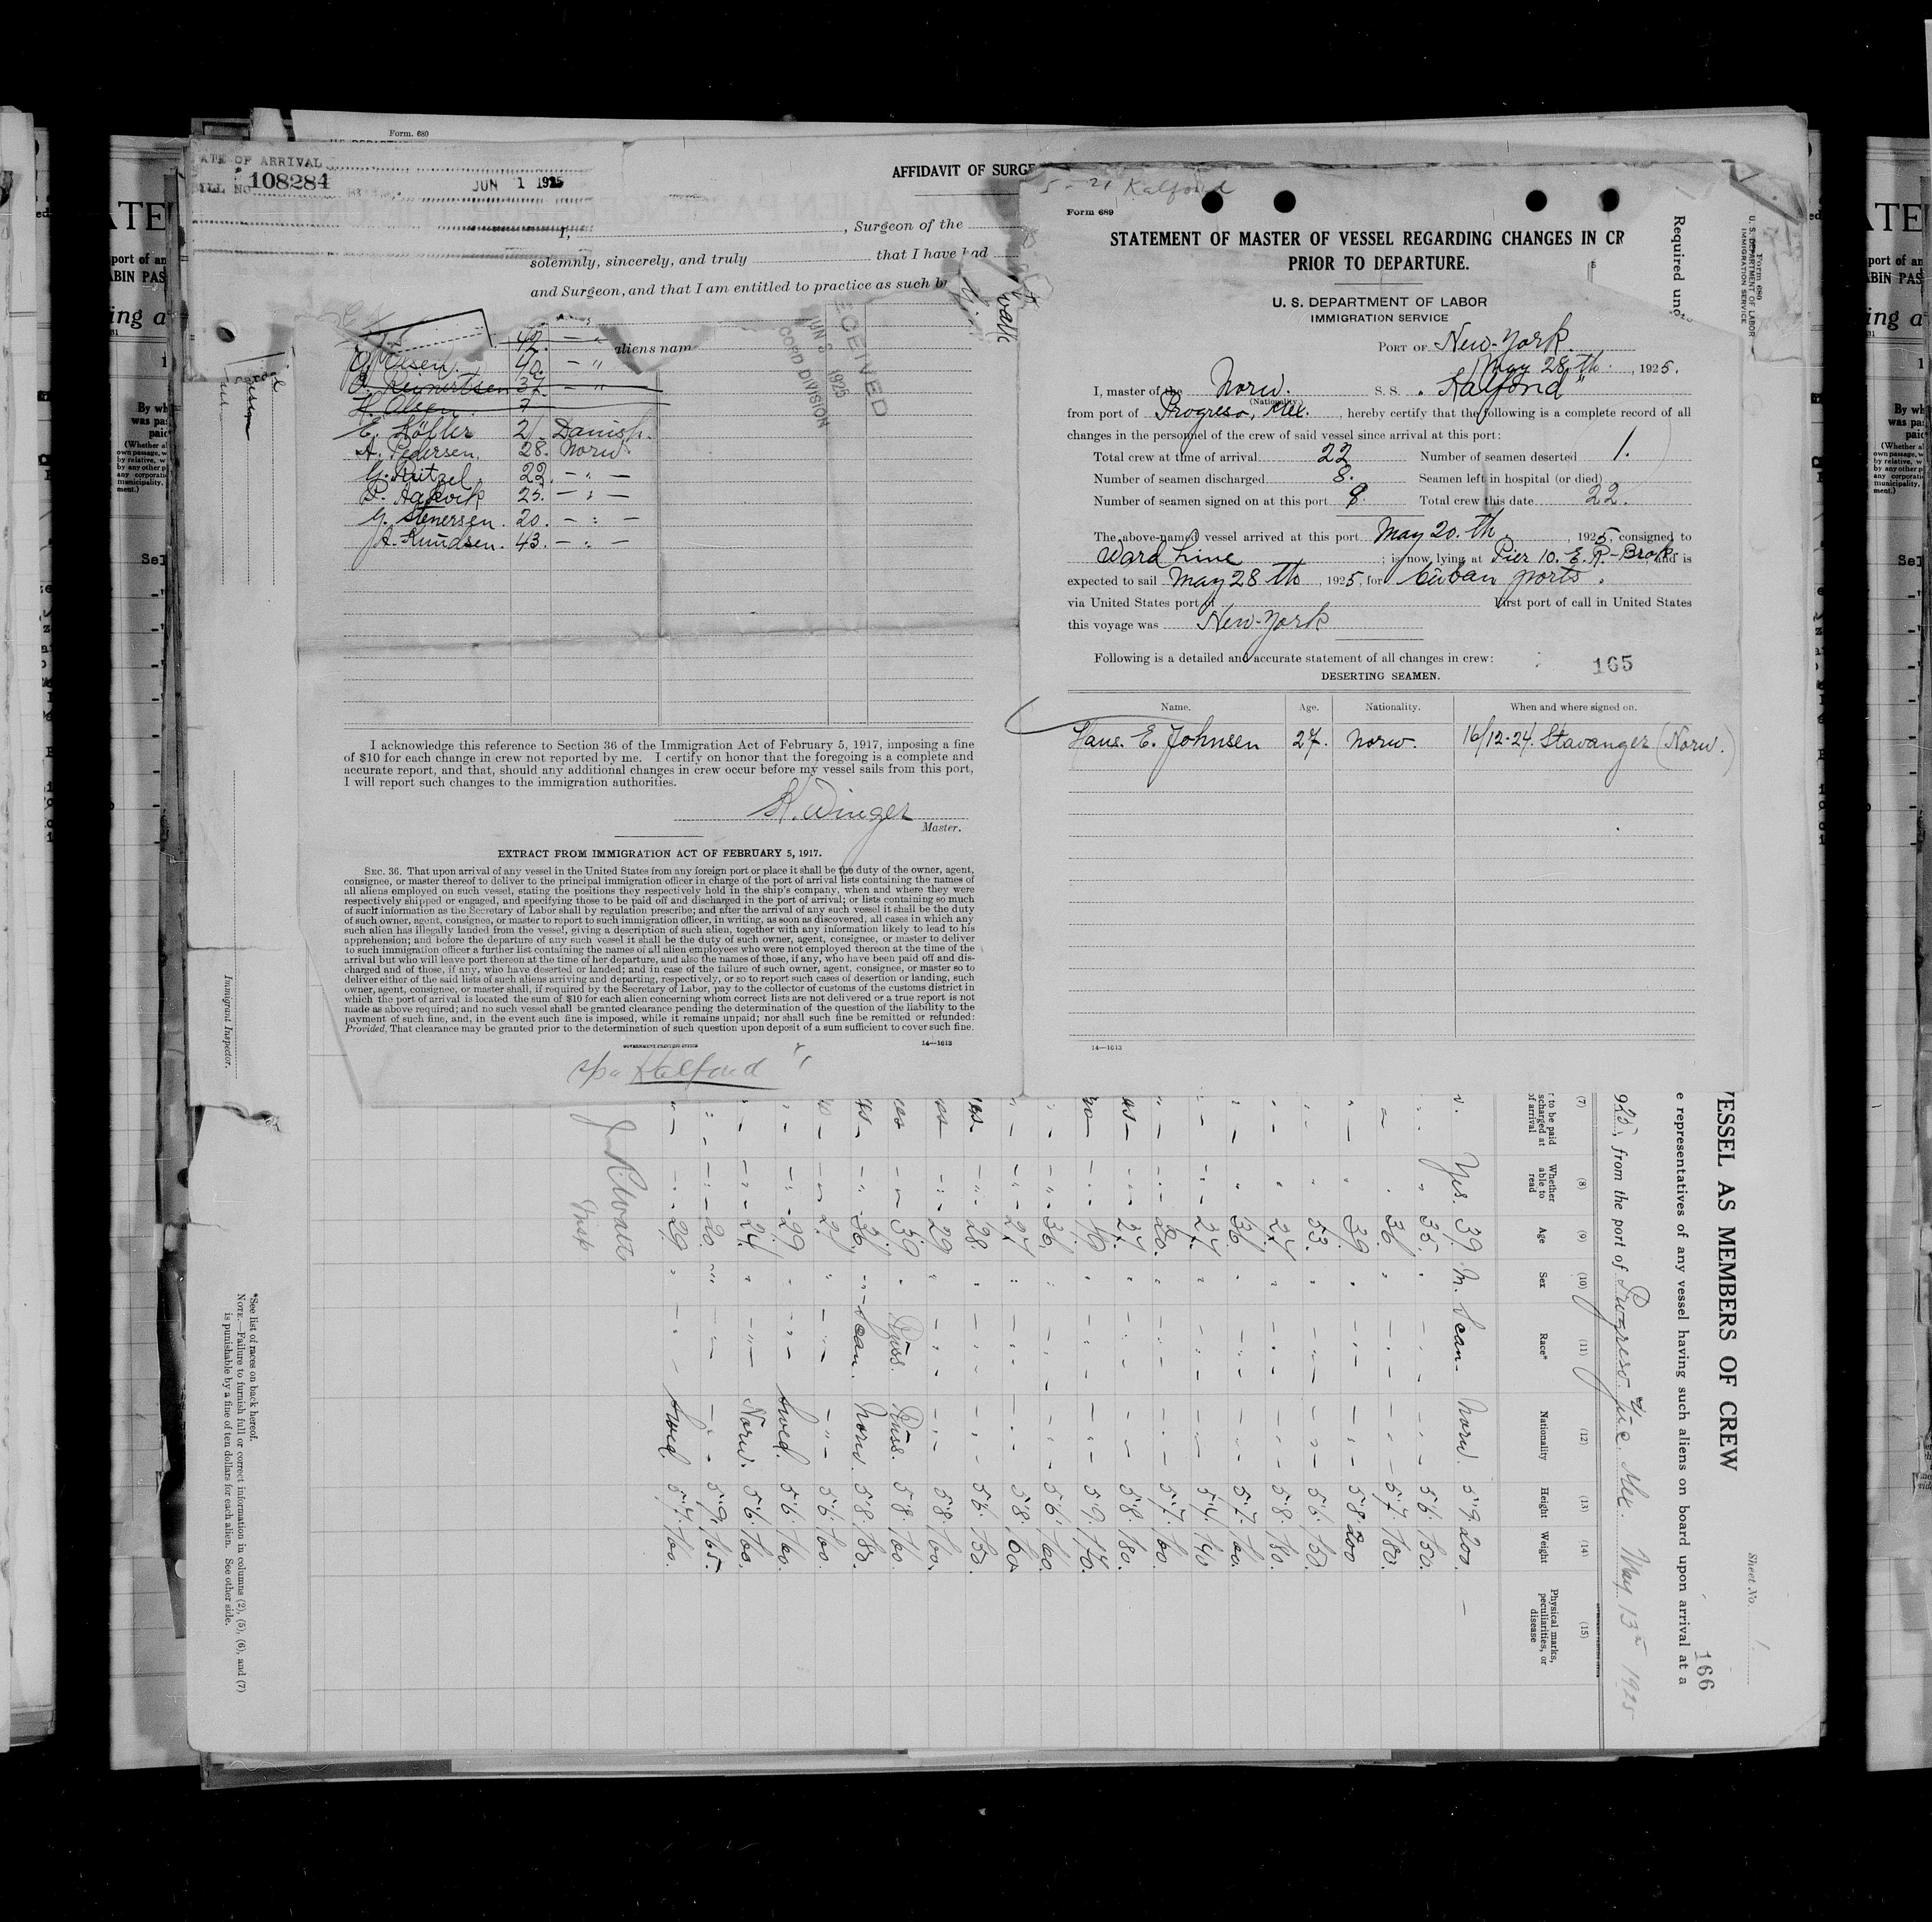 Form. 680
DATE OF ARRIVAL
108284
JUN 1 1925
AFFIDAVIT OF SURGE
I, , Surgeon of the
solemnly, sincerely, and truly that I have had
and Surgeon, and that I am entitled to practice as such
aliens nam
RECEIVED
JUN 3 1925
RECORD DIVISION
42. - " -
Olsen. 40 - "
Reinertsen 37 - "
H. Olsen.
E. Köfler 21 Danish.
A. Pedersen. 28. Norw.
22. - " -
P. Aakvik 25. - " -
G. Stenersen. 20. - " -
A. Knudsen. 43. - " -
I acknowledge this reference to Section 36 of the Immigration Act of February 5, 1917, imposing a fine
of $10 for each change in crew not reported by me. I certify on honor that the foregoing is a complete and
accurate report, and that, should any additional changes in crew occur before my vessel sails from this port,
I will report such changes to the immigration authorities.
K. Winger
Master.
EXTRACT FROM IMMIGRATION ACT OF FEBRUARY 5, 1917.
SEC. 36. That upon arrival of any vessel in the United States from any foreign port or place it shall be the duty of the owner, agent,
consignee, or master thereof to deliver to the principal immigration officer in charge of the port of arrival lists containing the names of
all aliens employed on such vessel, stating the positions they respectively hold in the ship's company, when and where they were
respectively shipped or engaged, and specifying those to be paid off and discharged in the port of arrival; or lists containing so much
of such information as the Secretary of Labor shall by regulation prescribe; and after the arrival of any such vessel it shall be the duty
of such owner, agent, consignee, or master to report to such immigration officer, in writing, as soon as discovered, all cases in which any
such alien has illegally landed from the vessel, giving a description of such alien, together with any information likely to lead to his
apprehension; and before the departure of any such vessel it shall be the duty of such owner, agent, consignee, or master to deliver
to such immigration officer a further list containing the names of all alien employees who were not employed thereon at the time of the
arrival but who will leave port thereon at the time of her departure, and also the names of those, if any, who have been paid off and dis-
charged and of those, if any, who have deserted or landed; and in case of the failure of such owner, agent, consignee, or master so to
deliver either of the said lists of such aliens arriving and departing, respectively, or so to report such cases of desertion or landing, such
owner, agent, consignee, or master shall, if required by the Secretary of Labor, pay to the collector of customs of the customs district in
which the port of arrival is located the sum of $10 for each alien concerning whom correct lists are not delivered or a true report is not
made as above required; and no such vessel shall be granted clearance pending the determination of the question of the liability to the
payment of such fine, and, in the event such fine is imposed, while it remains unpaid; nor shall such fine be remitted or refunded:
Provided, That clearance may be granted prior to the determination of such question upon deposit of a sum sufficient to cover such fine.
GOVERNMENT PRINTING OFFICE
14—1613
Kalfond
5 - 21 Kalfond
Form 689
STATEMENT OF MASTER OF VESSEL REGARDING CHANGES IN CR
PRIOR TO DEPARTURE.
U. S. DEPARTMENT OF LABOR
IMMIGRATION SERVICE
PORT OF New-York.
May 28th , 1925.
I, master of the Norw. S. S. "Kalfond"
(Nationality.)
from port of Progreso, Mex. , hereby certify that the following is a complete record of all
changes in the personnel of the crew of said vessel since arrival at this port:
Total crew at time of arrival 22 Number of seamen deserted 1.
Number of seamen discharged 8. Seamen left in hospital (or died)
Number of seamen signed on at this port 8. Total crew this date 22.
The above-named vessel arrived at this port May 20.th , 1925, consigned to
Ward Line ; is now lying at Pier 10. E. R-Brok, and is
expected to sail May 28 th , 1925, for Cuban ports.
via United States port of First port of call in United States
this voyage was New-York
Following is a detailed and accurate statement of all changes in crew:
165
DESERTING SEAMEN.
Name. Age. Nationality. When and where signed on.
Hans. E. Johnsen 27. Norw. 16/12-24. Stavanger (Norw.)
14—1613
Required und
Form 680
U. S. DEPARTMENT OF LABOR
IMMIGRATION SERVICE
Sheet No. 1
166
VESSEL AS MEMBERS OF CREW
e representatives of any vessel having such aliens on board upon arrival at a
925, from the port of Progreso Mex. May 13th 1925
(7) (8) (9) (10) (11) (12) (13) (14) (15)
r to be paid scharged at of arrival
Whether able to read
Age
Sex
Race*
Nationality
Height
Weight
Physical marks, peculiarities, or disease
Yes. 39. M. Scan- Norw. 5'9 200. -
35. 5'6 150.
36. 5'7. 180.
39. 5'8 200
53. 5'6. 150.
24. 5'8. 180.
36. 5'7. 160.
27. 5'4. 140.
20. 5'7. 160.
27. 5'8. 180.
19. 5'9. 170.
36. 5'6. 160.
27. 5'8. 160
28. 5'6. 150.
29 5'8. 160.
59 Russ. Russ. 5'8. 160.
36. Scan. Norw. 5'8. 180.
21. 5'6. 160.
29 Swed. 5'6. 160.
24. Norw. 5'6. 160.
20. 5'9. 165.
29. Swed. 5'7. 160.
Insp
Immigrant Inspector.
*See list of races on back hereof.
NOTE.—Failure to furnish full or correct information in columns (2), (5), (6), and (7)
is punishable by a fine of ten dollars for each alien. See other side.